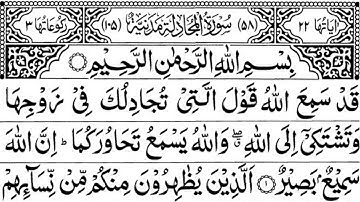 اٰيَاتُهَا ٢٢ (٥٨) سُوْرَةُ الْمُجَادِلَةِ مَدَنِيَّةٌ (١٠٥) رُكُوْعَاتُهَا ٣
بِسْمِ اللّٰهِ الرَّحْمٰنِ الرَّحِيْمِ
قَدْ سَمِعَ اللّٰهُ قَوْلَ الَّتِيْ تُجَادِلُكَ فِيْ زَوْجِهَا
وَتَشْتَكِيْٓ اِلَى اللّٰهِ ۖ وَاللّٰهُ يَسْمَعُ تَحَاوُرَكُمَا ؕ اِنَّ اللّٰهَ
سَمِيْعٌۢ بَصِيْرٌ ﴿١﴾ اَلَّذِيْنَ يُظٰهِرُوْنَ مِنْكُمْ مِّنْ نِّسَآئِهِمْ